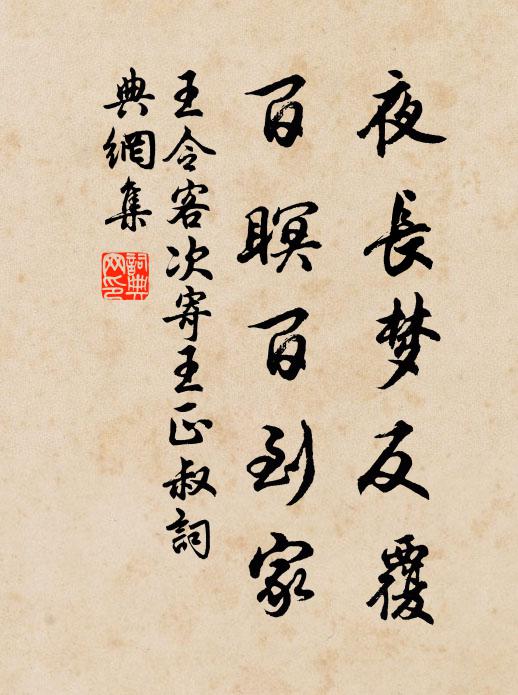 夜長梦反覆
百瞑百到家
王令客次寄王正叔詞
典網集
詞典网印